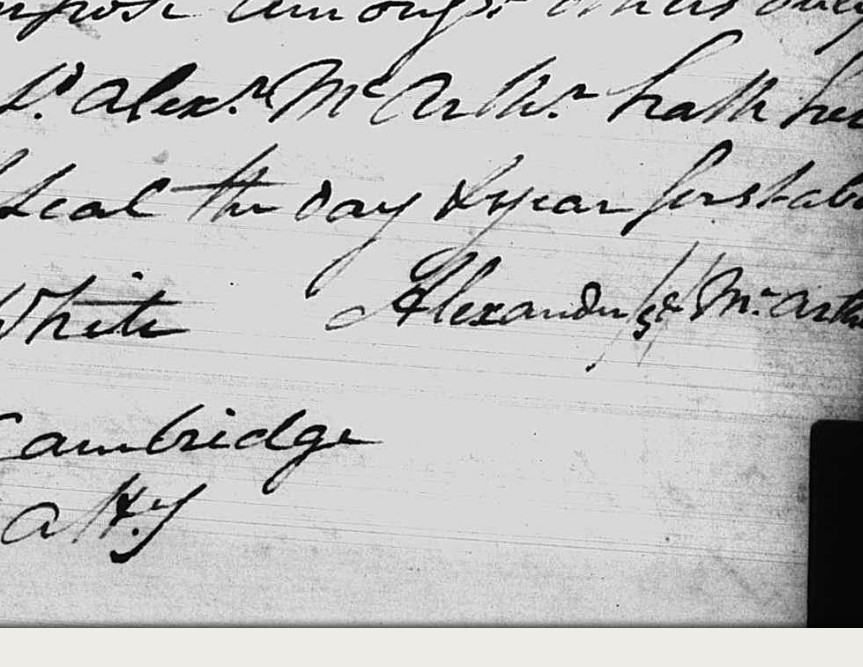 amongst others
Sd. Alexr. Mc Arthr. hath
Seal the day & year first abo
White Alexander Mc Arthr
Cambridge
atty